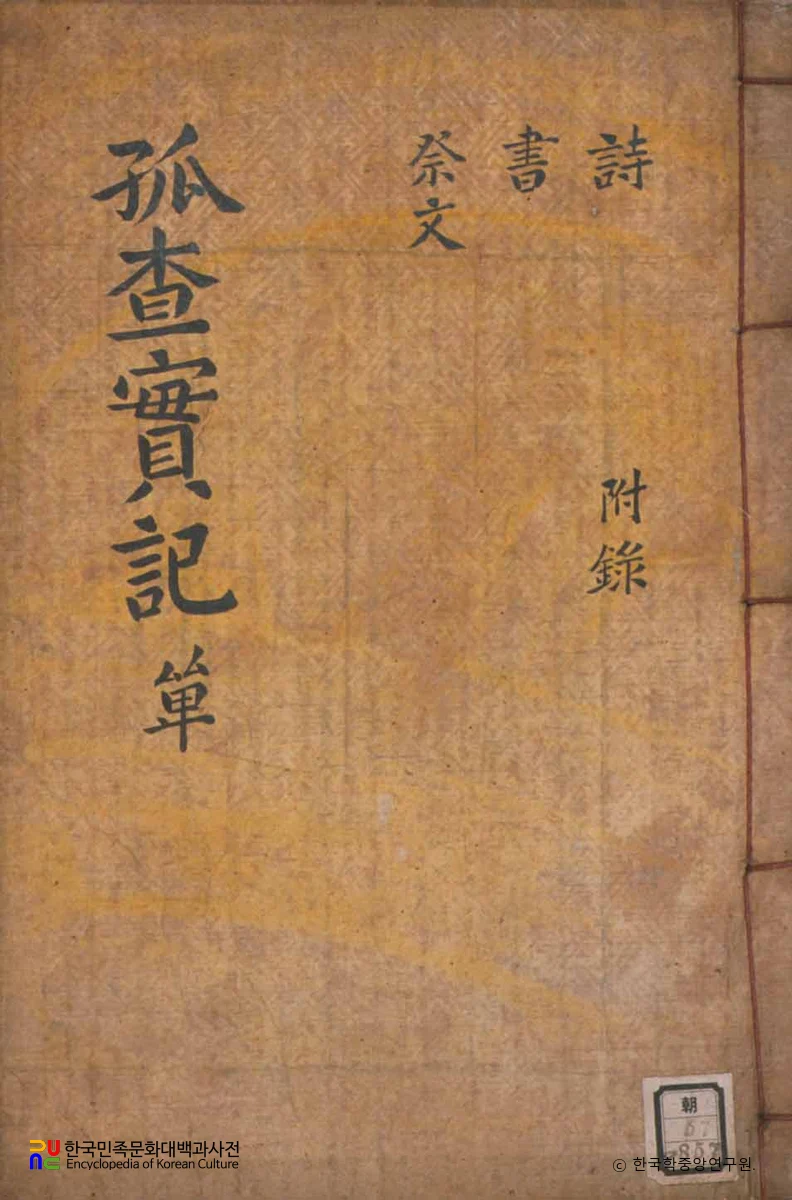 詩 附錄
書
祭文
孤查實記 單
朝
한국민족문화대백과사전
Encyclopedia of Korean Culture
ⓒ 한국학중앙연구원.